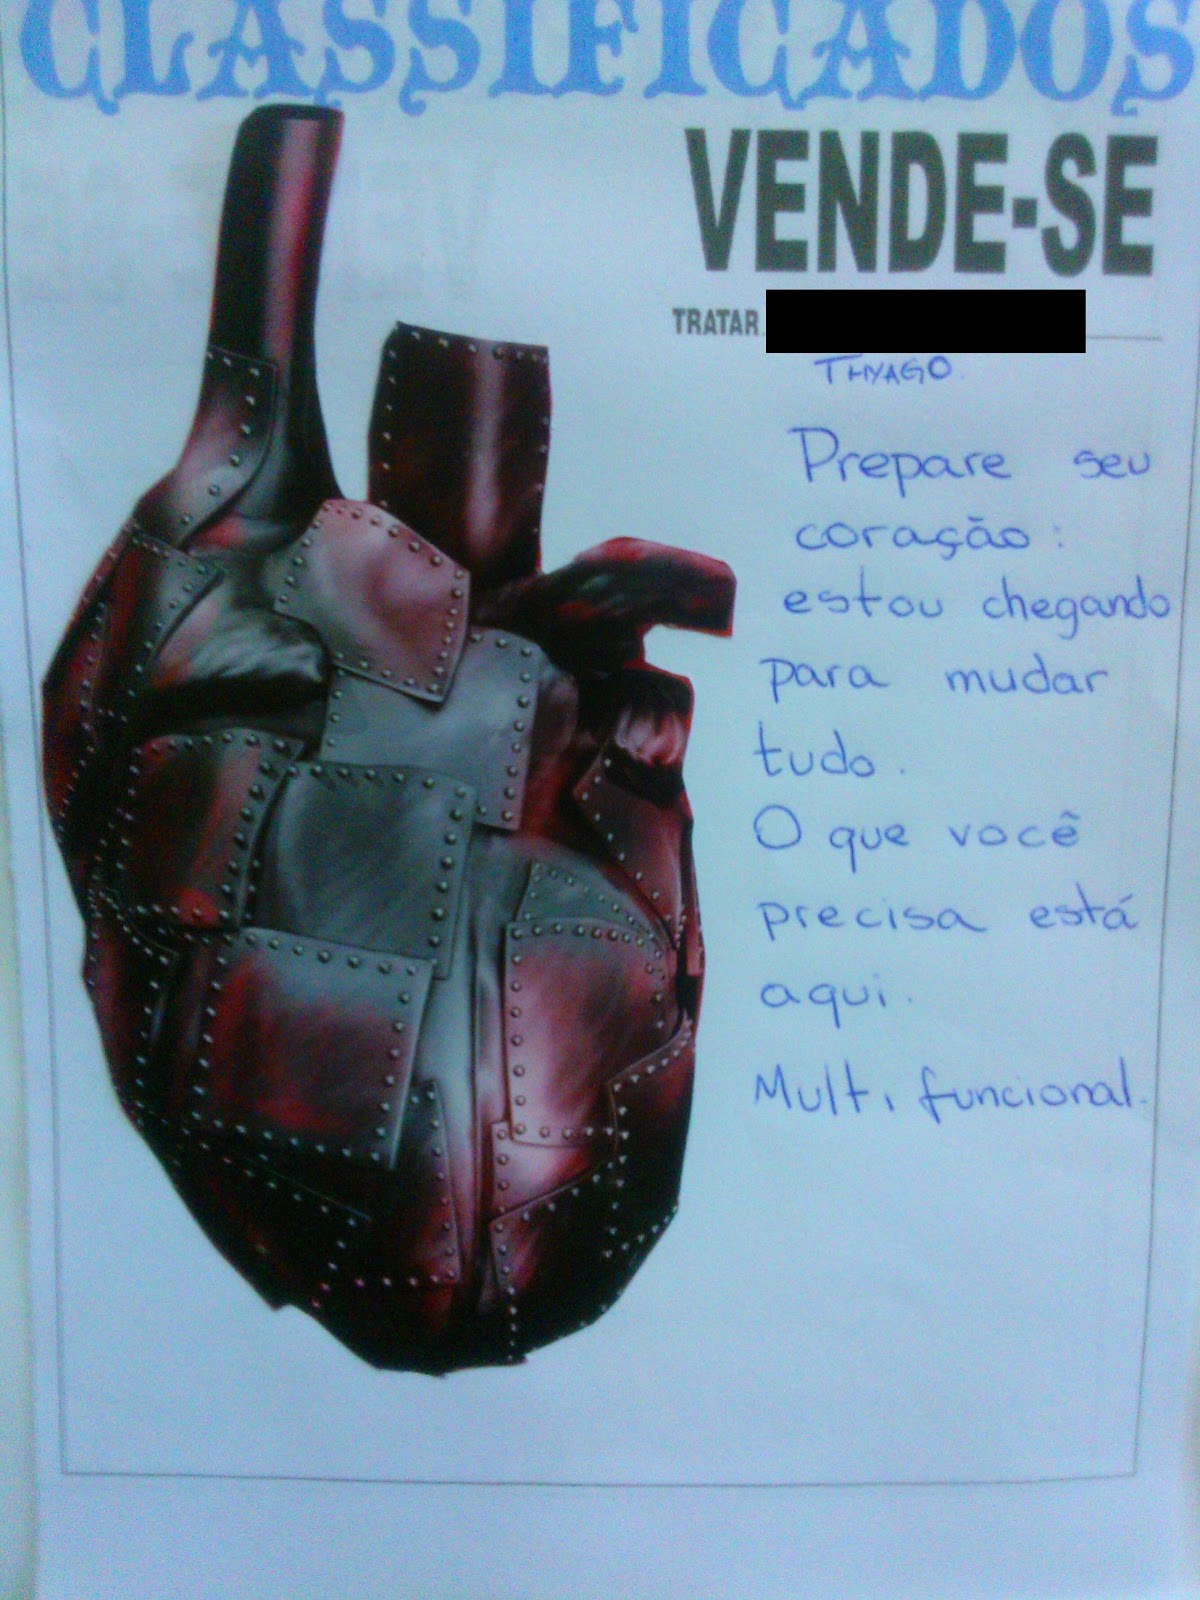 CLASSIFICADOS
VENDE-SE
TRATAR
THYAGO
Prepare seu
coração:
estou chegando
para mudar
tudo.
O que você
precisa está
aqui.
Multi funcional.